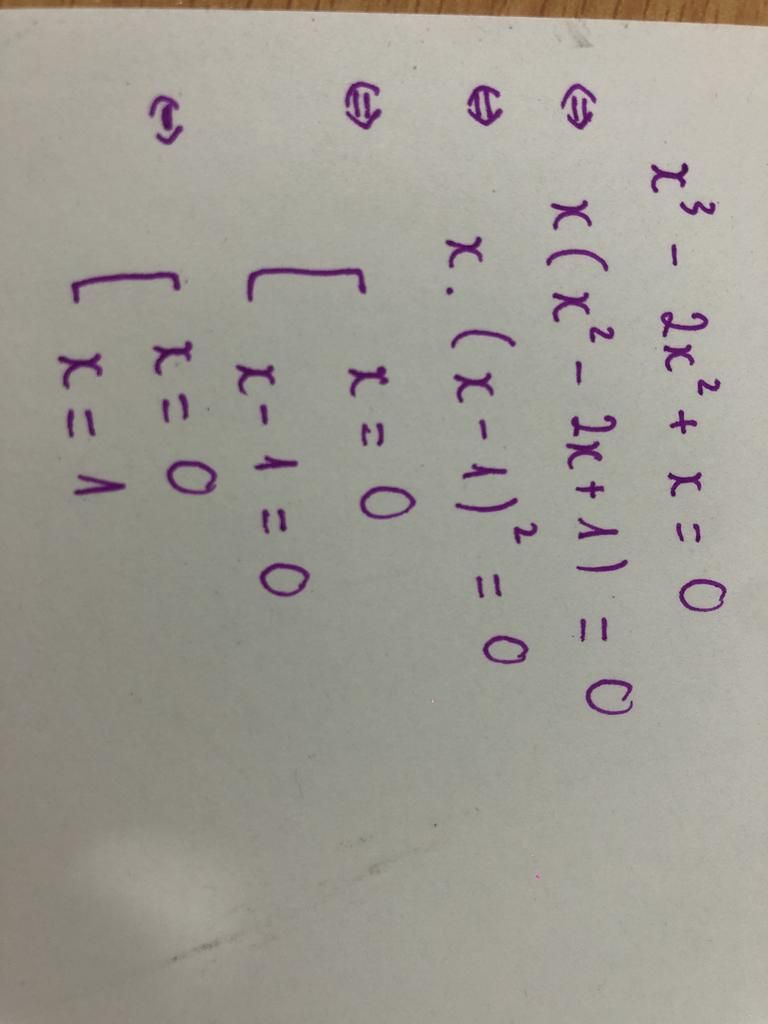 x³ - 2x² + x = 0
⇔ x(x² - 2x + 1) = 0
⇔ x.(x - 1)² = 0
⇔ [ x = 0
x - 1 = 0
⇔ [ x = 0
x = 1